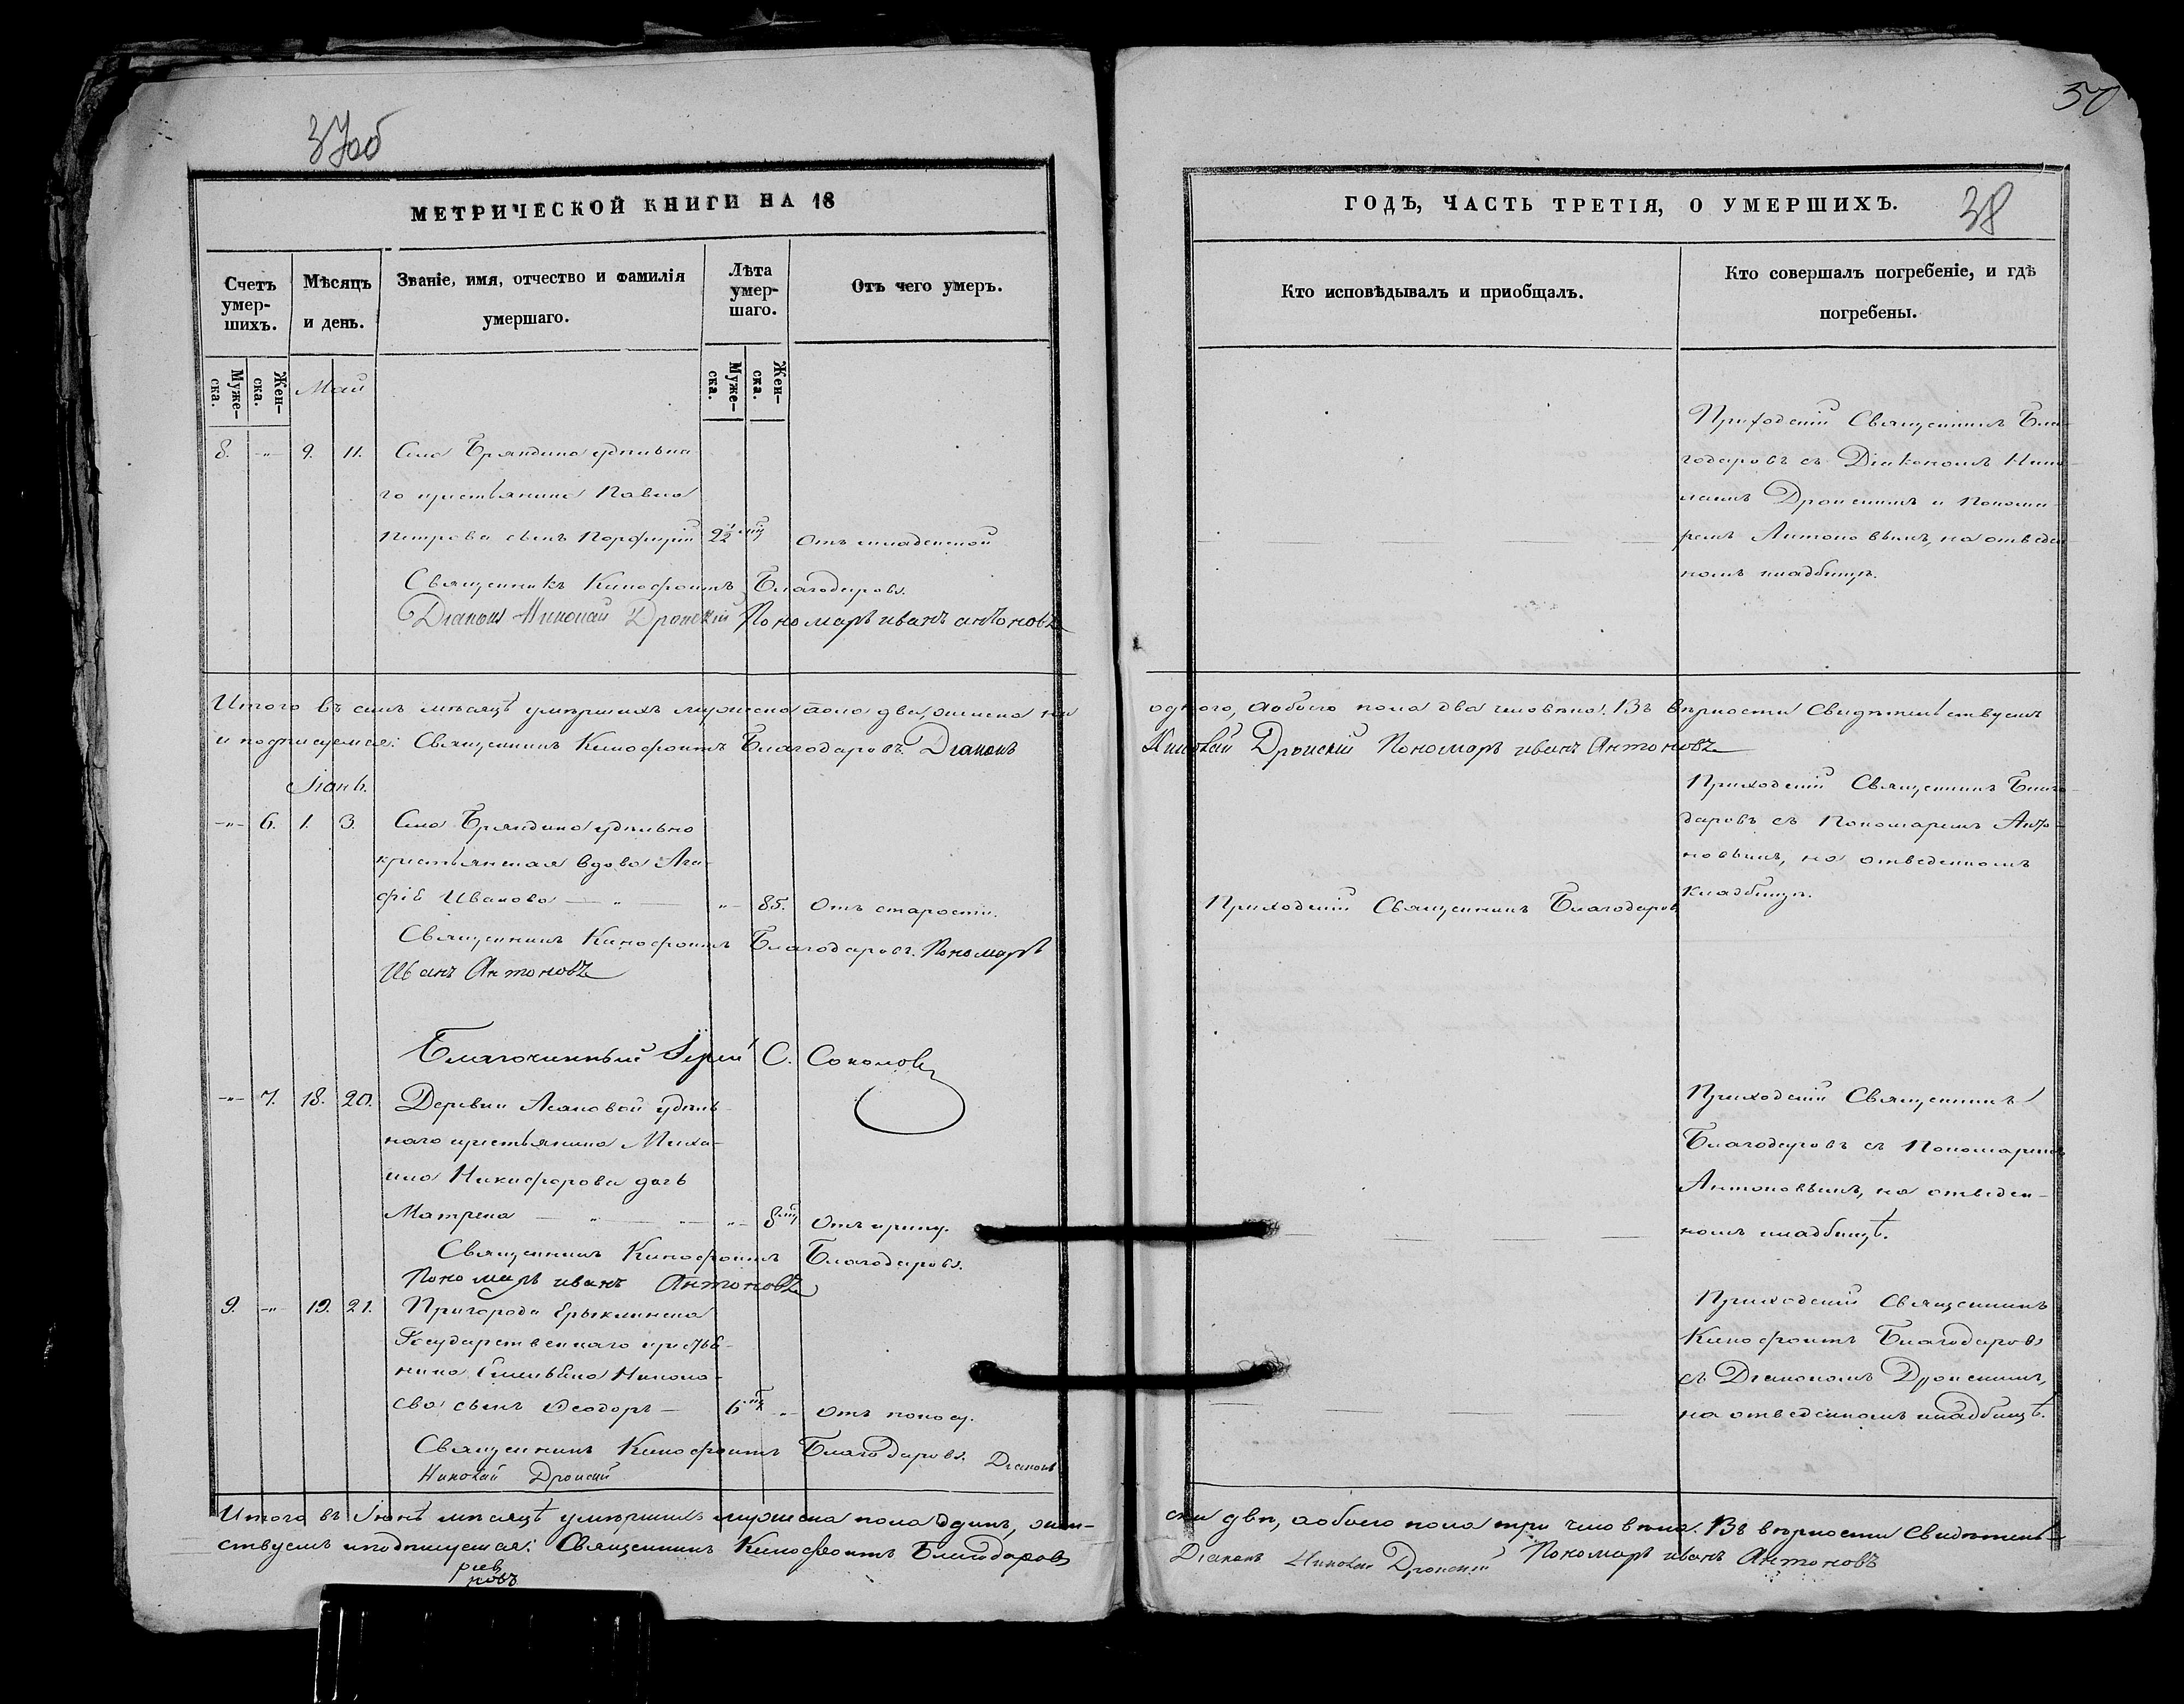 37об
МЕТРИЧЕСКОЙ КНИГИ НА 18
Счетъ умер-шихъ.
Мѣсяцъ и день.
Званіе, имя, отчество и фамилія
умершаго.
Лѣта умер-шаго.
Отъ чего умеръ.
Муже-ска.
Жен-ска.
Муже-ска.
Жен-ска.
Май
8. -"- 9. 11. Села Бряндина удѣльна
го крестьянина Павла
Петрова сынъ Порфирій 2½ Отъ младенской
Священникъ Ксенофонтъ Благодаровъ.
Діаконъ Николай Дронскій Пономарь иванъ антоновъ
Итого въ семъ мѣсяцѣ умершихъ мужеска пола два, женска ни
и подписуемся: Священникъ Ксенофонтъ Благодаровъ. Діаконъ
Іюнь.
-"- 6. 1. 3. Села Бряндина удѣльно
крестьянская вдова Ага-
фія Иванова -"- 85. Отъ старости.
Священникъ Ксенофонтъ Благодаровъ. Пономарь
Иванъ Антоновъ
Благочинный Іерей С. Соколовъ
-"- 7. 18. 20. Деревни Асановой удѣль-
наго крестьянина Миха-
ила Никифорова дочь
Матрена -"- 8 Отъ крику.
Священникъ Ксенофонтъ Благодаровъ.
Пономарь иванъ Антоновъ
9. -"- 19. 21. Пригорода Ерыклинска
Государственнаго крестья-
нина Никола-
ева сынъ Ѳеодоръ 6 -"- Отъ поносу.
Священникъ Ксенофонтъ Благодаровъ. Діаконъ
Николай Дронскій
Итого въ Іюнѣ мѣсяцѣ умершихъ мужеска пола одинъ, жен-
ствуемъ и подписуемся: Священникъ Ксенофонтъ Благодаровъ
ревъ
новъ
50
ГОДЪ, ЧАСТЬ ТРЕТІЯ, О УМЕРШИХЪ.
38
Кто исповѣдывалъ и пріобщалъ.
Кто совершалъ погребеніе, и гдѣ
погребены.
Приходскій Священникъ Бла-
годаровъ съ Діакономъ Нико-
лаемъ Дронскимъ и Понома-
ремъ Антоновымъ, на отведен-
номъ кладбищѣ.
одного, а обоего пола два человѣка. Въ вѣрности свидѣтельствуемъ
Николай Дронскій Пономарь иванъ Антоновъ
Приходскій Священникъ Благо-
даровъ съ Пономаремъ Анто-
новымъ, на отведенномъ
Приходскій Священникъ Благодаровъ кладбищѣ.
Приходскій Священникъ
Благодаровъ съ Пономаремъ
Антоновымъ, на отведен-
номъ кладбищѣ.
Приходскій Священникъ
Ксенофонтъ Благодаровъ
съ Діакономъ Дронскимъ,
на отведенномъ кладбищѣ.
ска двѣ, а обоего пола три человѣка. Въ вѣрности свидѣтель-
Діаконъ Николай Дронскій Пономарь иванъ Антоновъ